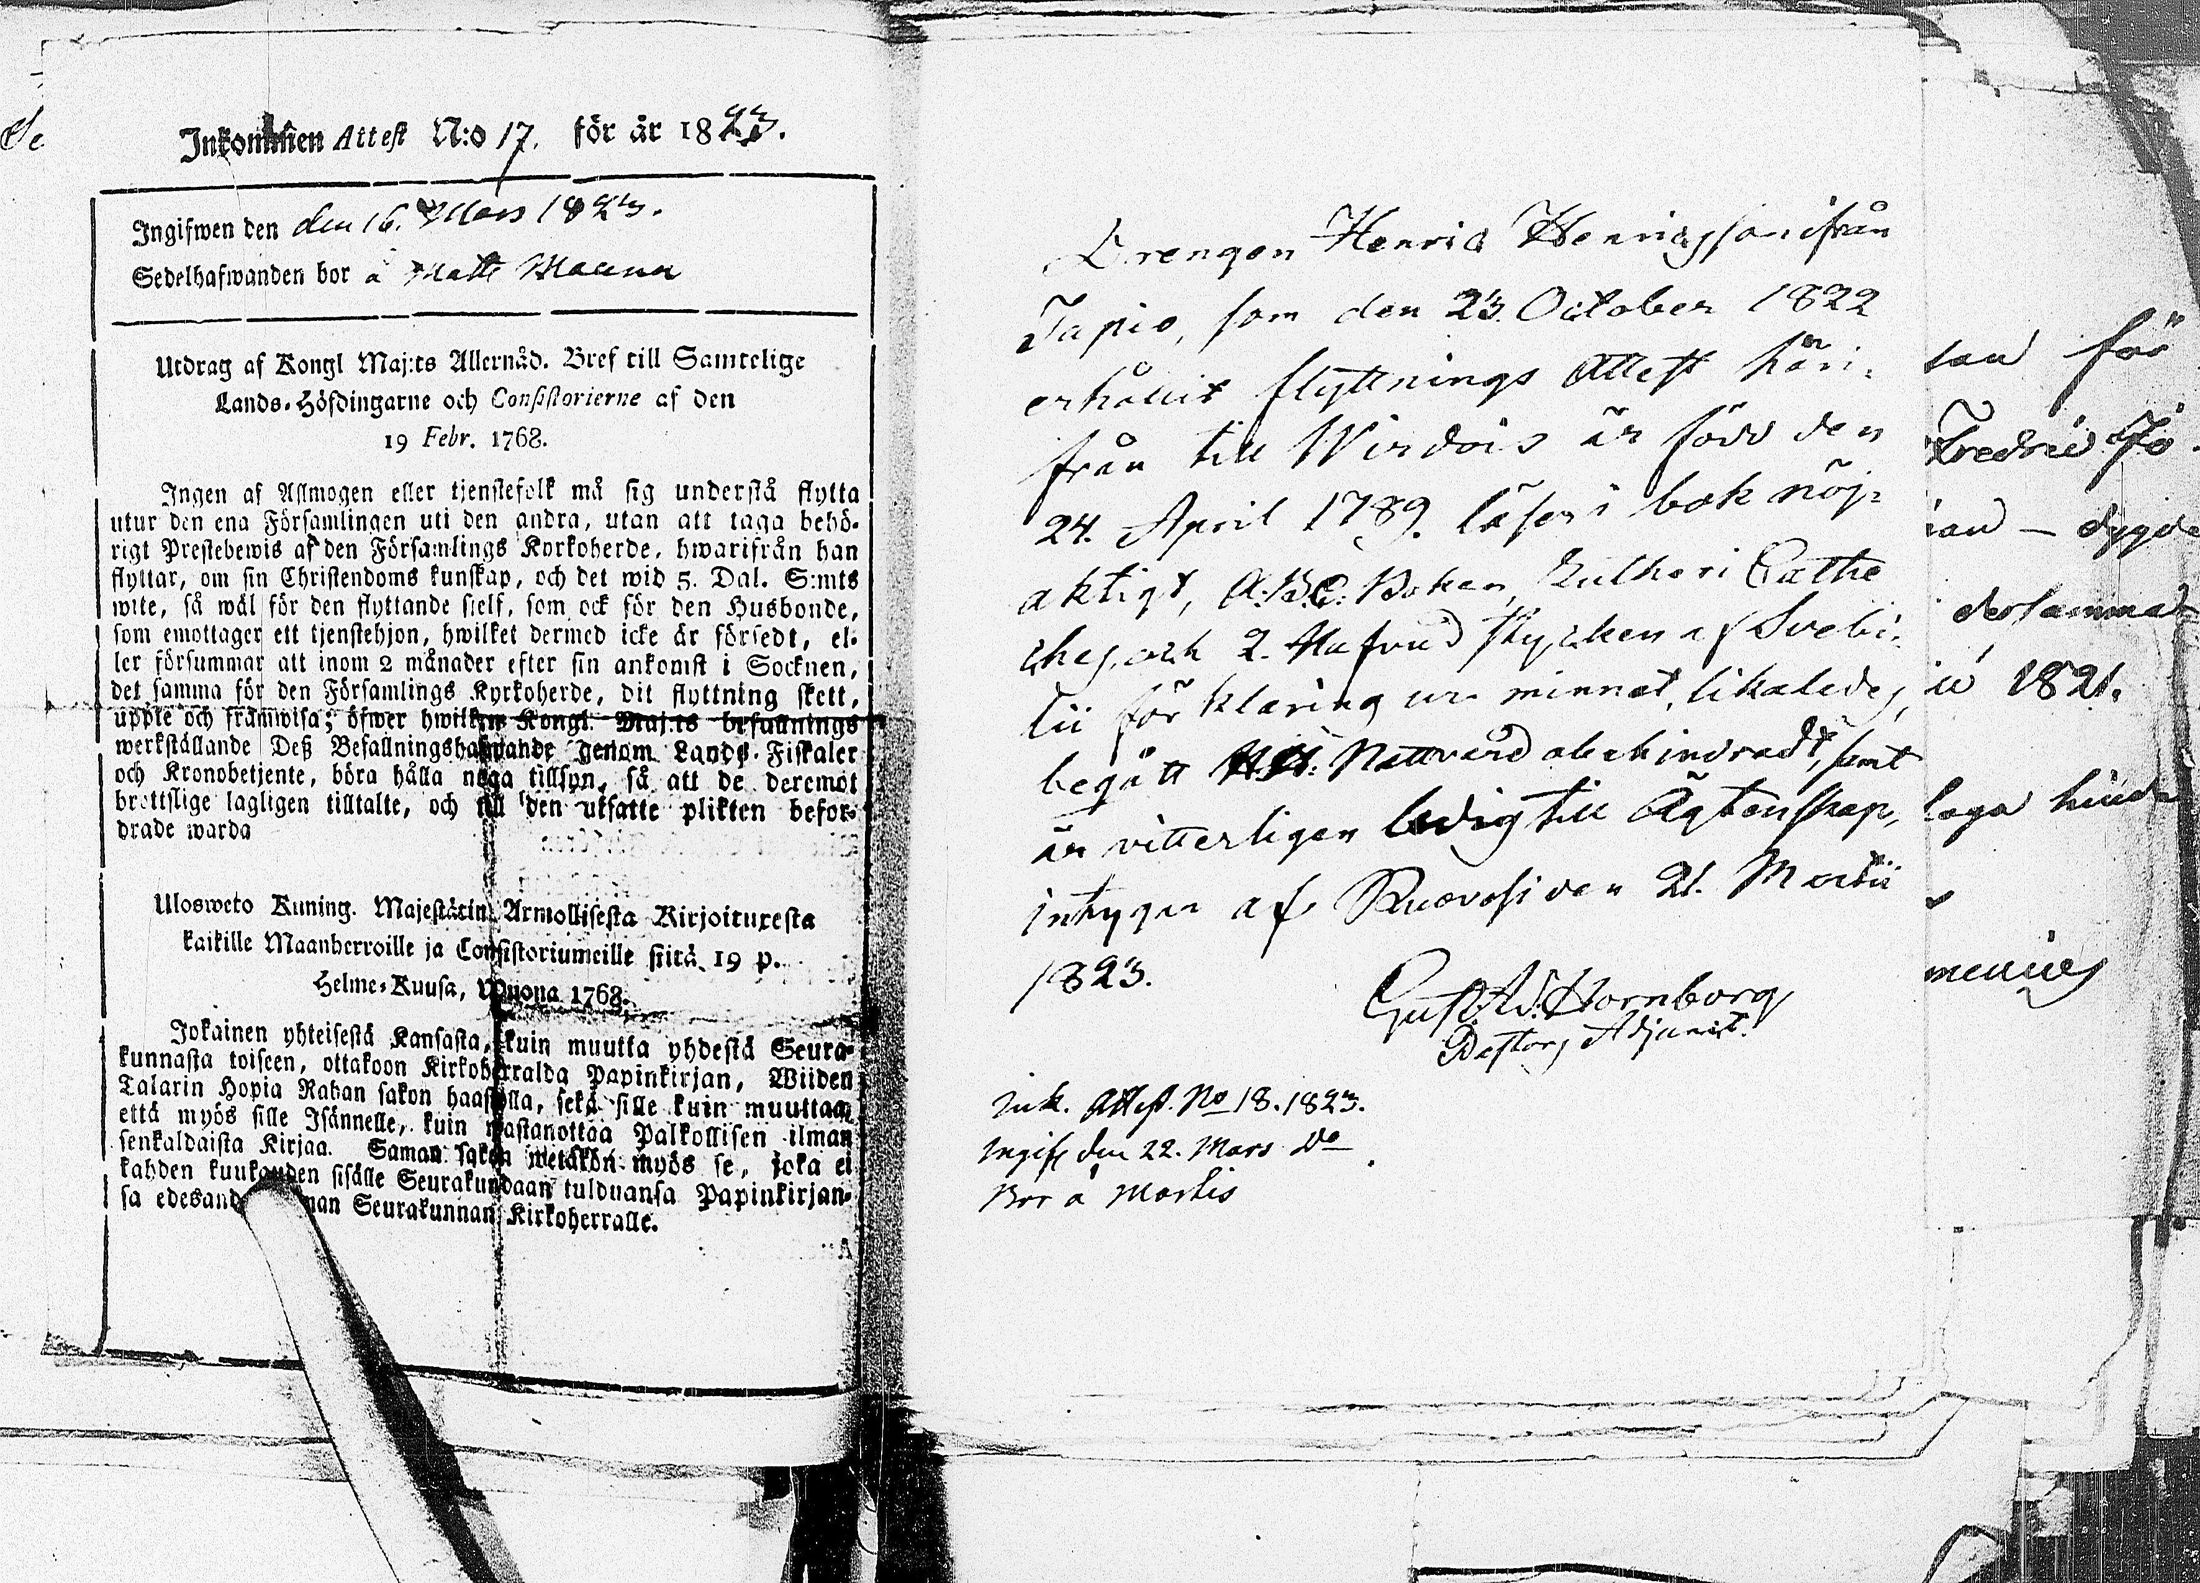 Inkommen Attest N:o 17. för år 1823.
Ingifwen den den 16. Mars 1823.
Sedelhafwanden bor å Matts Mauna
Utdrag af Kongl Maj:ts Allernåd. Bref till Samtelige
Lands-Höfdingarne och Consistorierne af den
19 Febr. 1768.
Ingen af Allmogen eller tjenstefolk må sig understå flytta
utur den ena Församlingen uti den andra, utan att taga behö-
rigt Prestebewis af den Församlings Kyrkoherde, hwarifrån han
flyttar, om sin Christendoms kunskap, och det wid 5. Dal. S:mts
wite, så wäl för den flyttande sielf, som ock för den Husbonde,
som emottager ett tjenstehjon, hwilket dermed icke är försedt, el-
ler försummar att inom 2 månader efter sin ankomst i Socknen,
det samma för den Församlings Kyrkoherde, dit flyttning skett,
upte och framwisa; öfwer hwilken Kongl. Maj:ts befallnings
werkställande Deß Befallningshafwande genom Lands-Fiskaler
och Kronobetjente, böra hålla noga tillsyn, så att de deremot
brottslige lagligen tilltalte, och till den utsatte plikten befor-
drade warda
Ulosweto Kuning. Majestätin Armollisesta Kirjoituxesta
kaikille Maanherroille ja Consistoriumeille siitä 19 p.
Helme-Kuusa, Wuona 1768.
Jokainen yhteisestä Kansasta, kuin muutta yhdestä Seura-
kunnasta toiseen, ottakoon Kirkoherralda Papinkirjan, Wiiden
Talarin Hopia Rahan sakon haastolla, sekä sille kuin muuttaa,
että myös sille Isännelle, kuin wastanottaa Palkollisen ilman
senkaldaista Kirjaa. Saman sakon wetäkön myös se, joka ei
kahden kuukauden sisälle Seurakundaan tulduansa Papinkirjan-
sa edesand nan Seurakunnan Kirkoherralle.
Drengen Henric Henricsson ifrån
Tapio, som den 23. October 1822
erhållit flyttnings Attest häri-
från till Wirdois är född den
24. April 1789. läser i bok nöj-
aktigt, A.B.C. Boken, Lutheri Cathe
ches, och 2. Hufvud stycken af Svebi-
lii förklaring ur minnet, likaledes
begått H.H. Nattvard obehindradt, samt
är vitterligen ledig till Ägtenskap,
intygar af Ruovesi den 21. Martii
1823.
Gust. Ad. Hornborg
Pastors Adjunct.
Ink. Attest. No 18. 1823.
Ingifv den 22. Mars Do
Bor å Martis
för
Fredric Jo
dygde
dersamma
1821.
laga hind